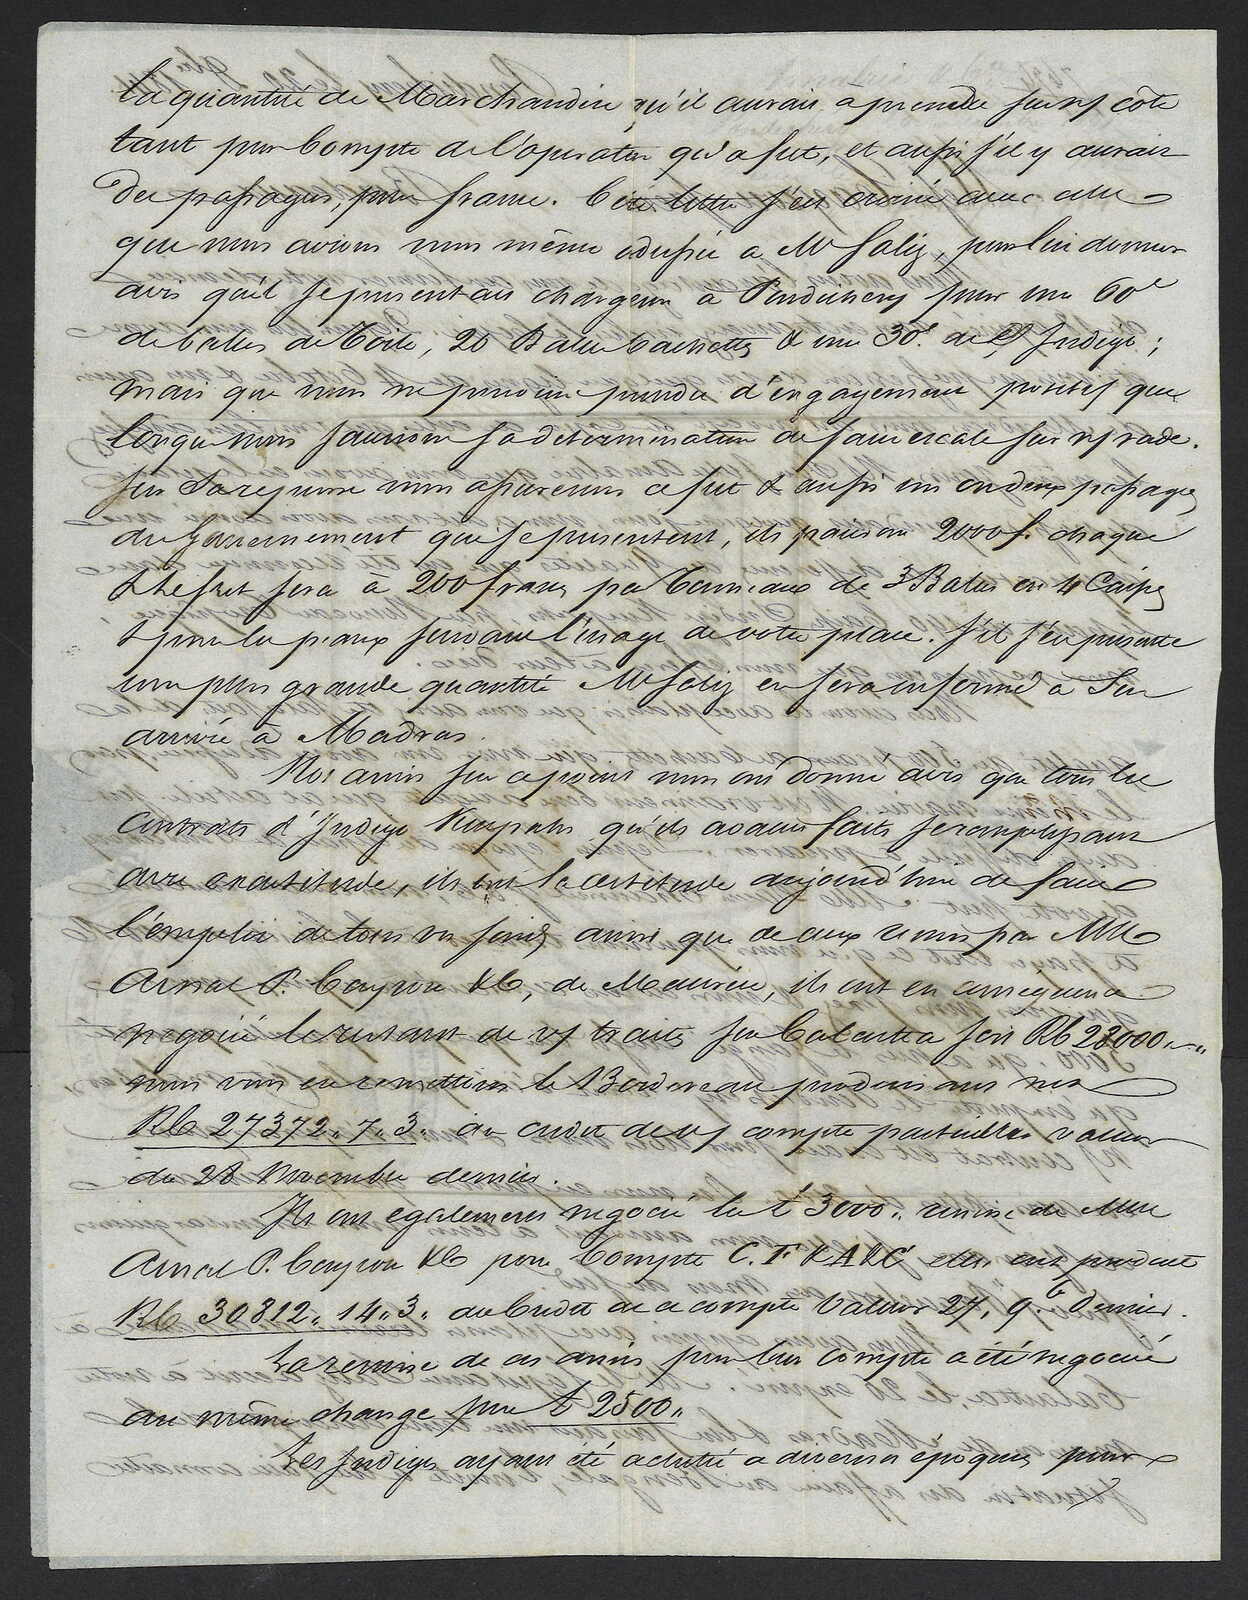 la quantité de Marchandise qu'il aurait à prendre sur n/ côte
tant pour Compte de l'opération qu'a fret, et aussi s'il y aurait
des passagers, pour france. Cette lettre s'est croisée avec celle
que nous avions nous même adressée a Mr Saliz, pour lui donner
avis qu'il se présentait chargeur à Pondichery pour une 60e
de balles de Toile, 20 Balles Cachettes & une 30e de Cs Indigo ;
mais que nous ne pouvions prendre d'engagement positif que
lorsque nous saurions sa determination de faire escale sur n/ rade.
Sur sa reponse nous assurerons ce fret & aussi un ou deux passagers
du Gouvernement qui se présentent, ils paieront 2000 f. chaque
& le fret sera à 200 francs par Tonneaux de 3 Balles ou 4 Caisses
& pour les peaux suivant l'usage de votre place. S'il s'en présente
une plus grande quantité Mr Saliz en sera informé a Son
arrivée à Madras.
Nos amis sur ce point nous ont donné avis que tous les
contrats d'Indigo Kurpahs qu'ils avaient faits se remplissant
avec exactitude, ils ont la certitude aujourd'hui de faire
l'emploi de tous vos fonds ainsi que de ceux remis par MM
Arnal P. Cayrou &C, de Maurice, ils ont en consequence
negocié le restant de v/ traites sur Calcutta soit Rs 28000 "
nous vous en remettons le Bordereau produisant net
Rs 27372 " 7 " 3 " au credit de v/ compte particulier valeur
du 28 Novembre dernier.
Ils ont egalement negocié les £ 3000 " remise de MM
Arnal P. Cayrou &C pour Compte C. F. & A & C elles ont produit
Rs 30812 " 14 " 3 " au Credit de ce compte Valeur 27. 9bre Dernier.
La remise de ces amis pour leur compte a été negociée
au même change pour £ 2500 "
Les Indigos ayant été achetés a diverses époques pour